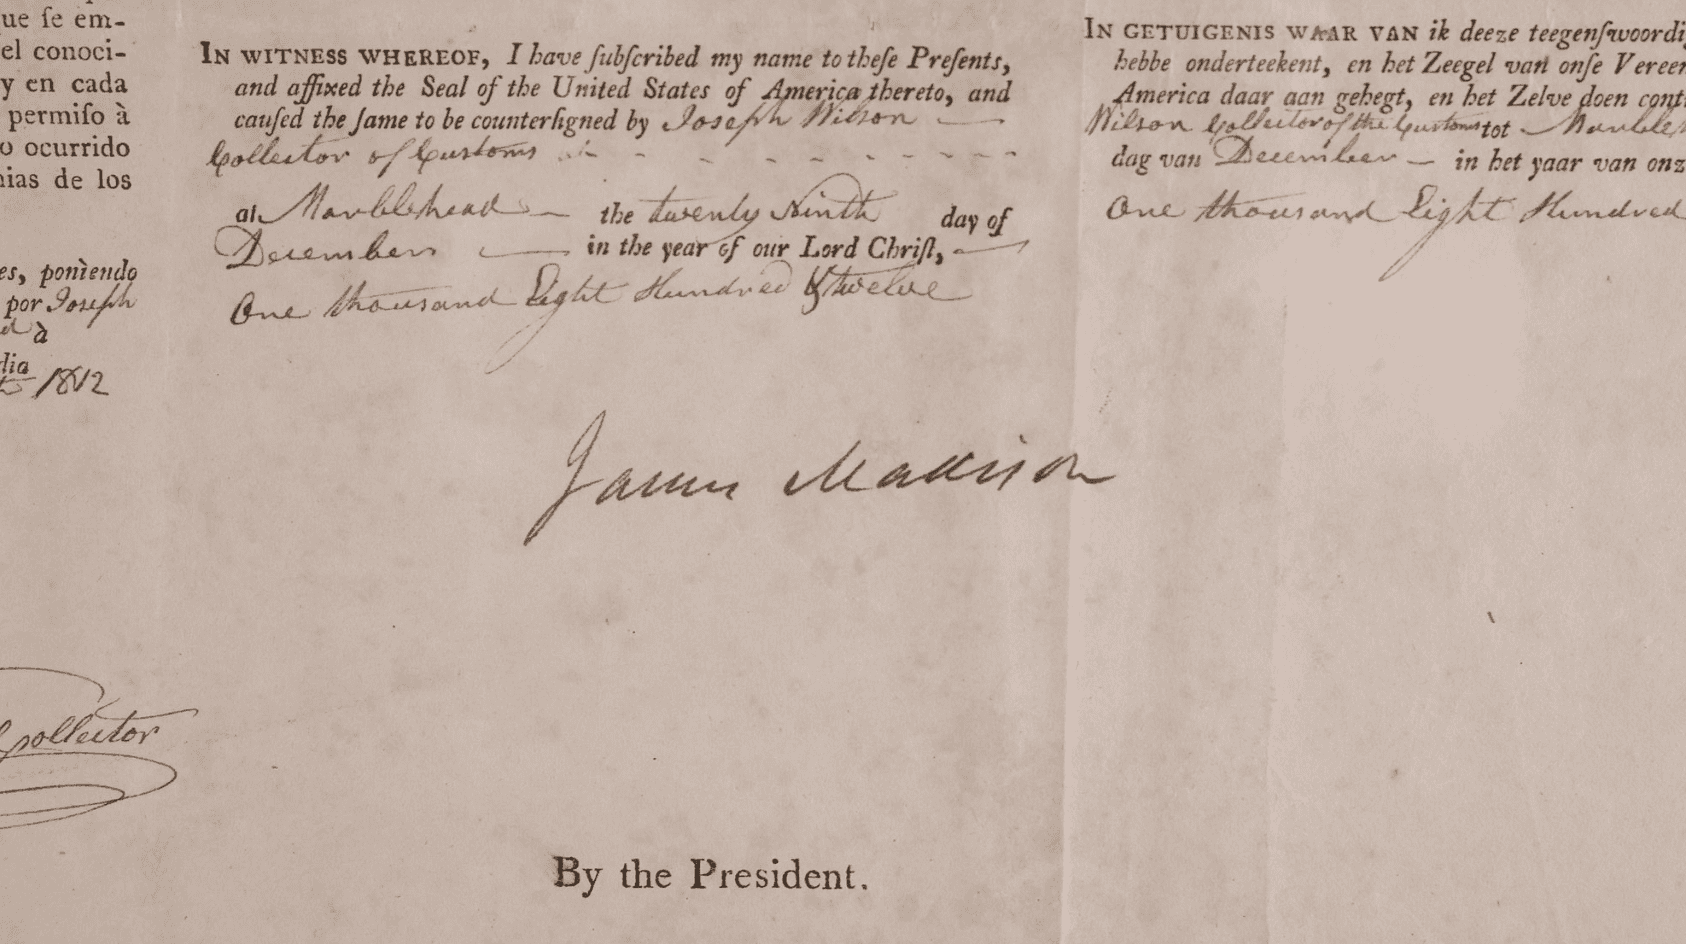 ue ſe em-
el conoci-
y en cada
permiſo à
o ocurrido
ias de los
es, poniendo
por Joseph
à
dia
1812
Collector
IN WITNESS WHEREOF, I have ſubſcribed my name to theſe Preſents,
and affixed the Seal of the United States of America thereto, and
cauſed the ſame to be counterſigned by Joseph Wilson —
Collector of Customs - - - - - - - - -
at Marblehead — the twenty Ninth day of
December — in the year of our Lord Chriſt, —
One thousand Eight Hundred & twelve
James Madison
By the President.
IN GETUIGENIS WAAR VAN ik deeze teegenſwoordi
hebbe onderteekent, en het Zeegel van onſe Vereen
America daar aan gehegt, en het Zelve doen cont
Wilson Collector of the Customs tot — Marbleh
dag van December — in het yaar van onz
One thousand Eight Hundred